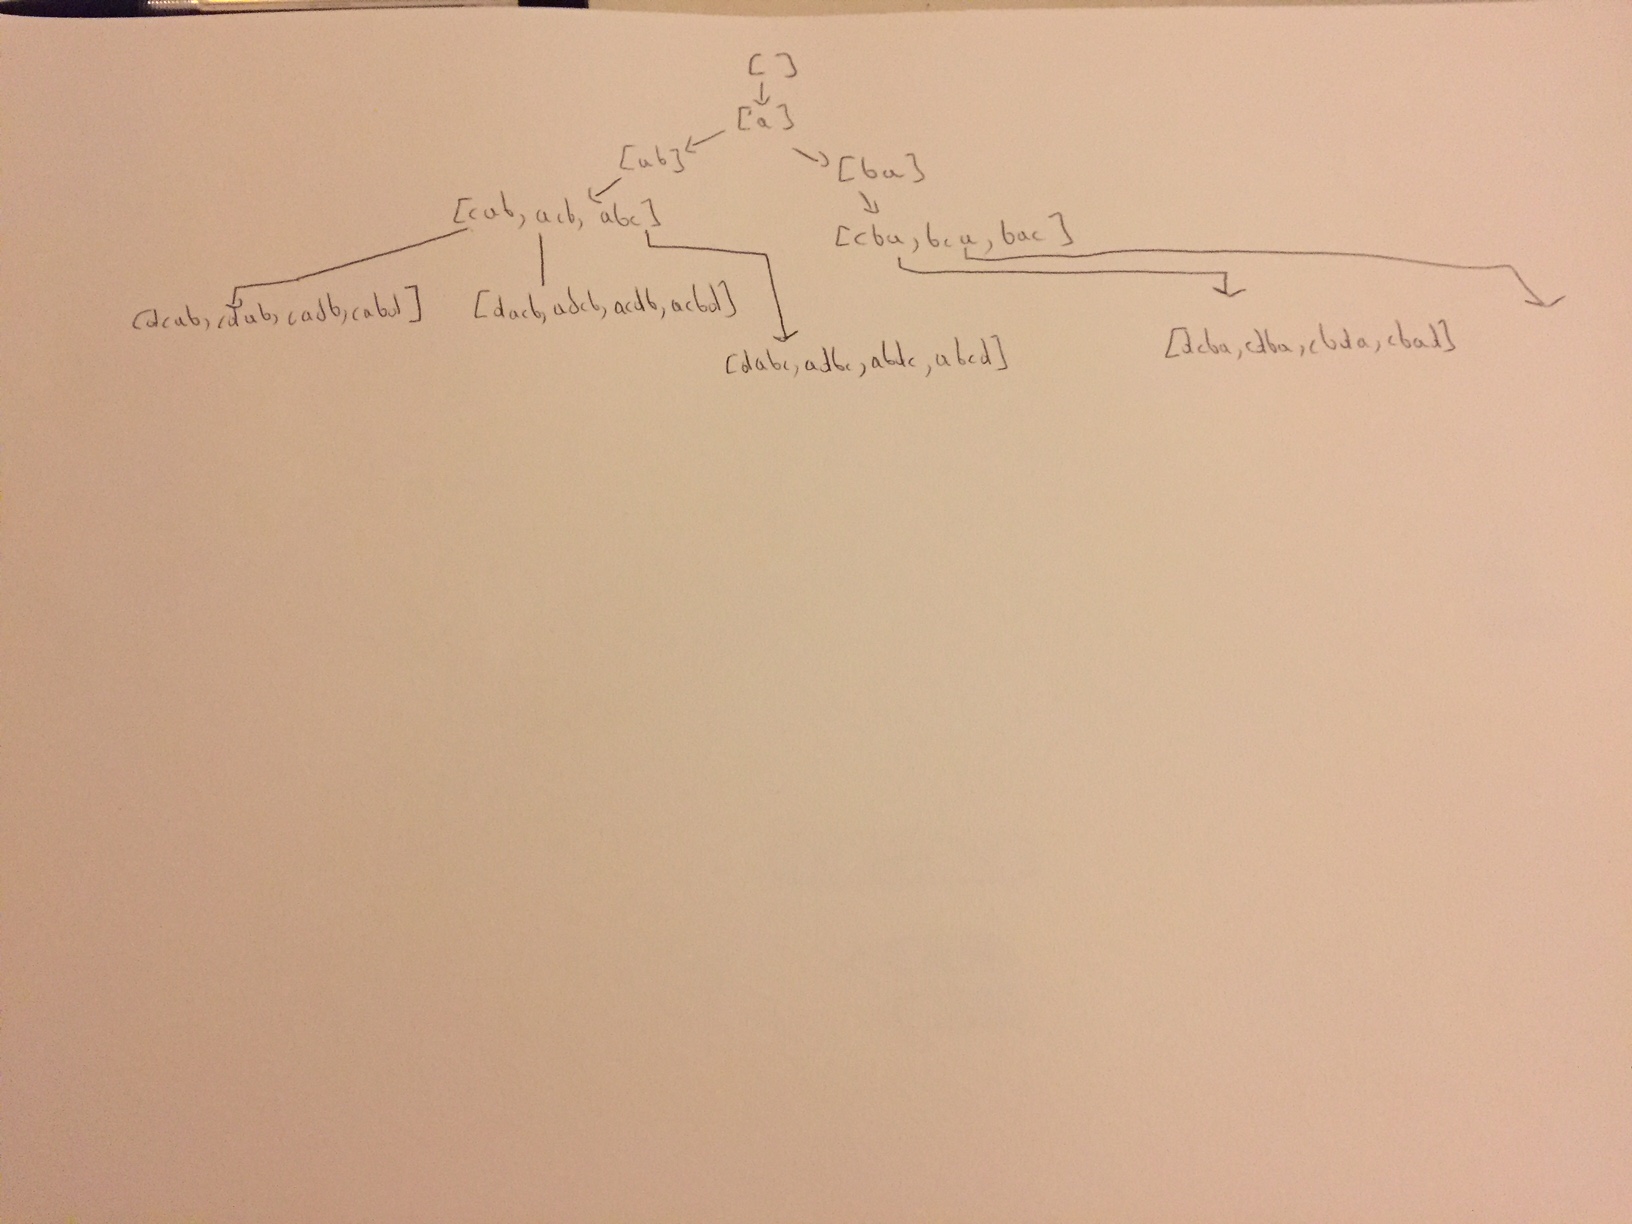 [ ]
[a]
[ab]
[ba]
[cab, acb, abc]
[cba, bca, bac]
[dcab, cdab, cadb, cabd]
[dacb, adcb, acdb, acbd]
[dabc, adbc, abdc, abcd]
[dcba, cdba, cbda, cbad]